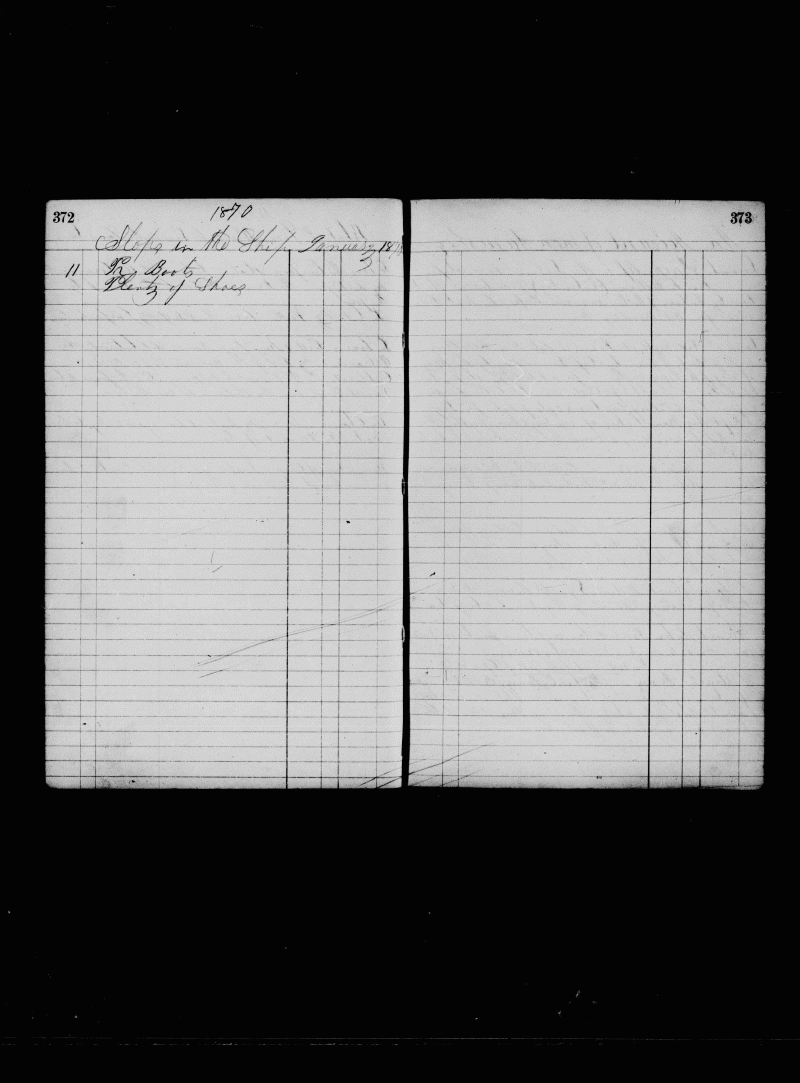 372
1870
Slops in the Ship January 187
11 Pr Boots
Plenty of Shoes
373